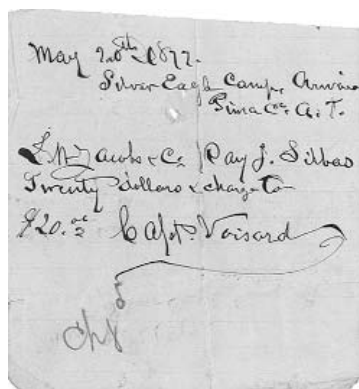 May 20th 1877.
Silver Eagle Camp,
Pima Co. A. T.
L. M. Jacobs & Co Pay J. Sibbas
Twenty dollars & charge to
$20.00 Capt. Voisard